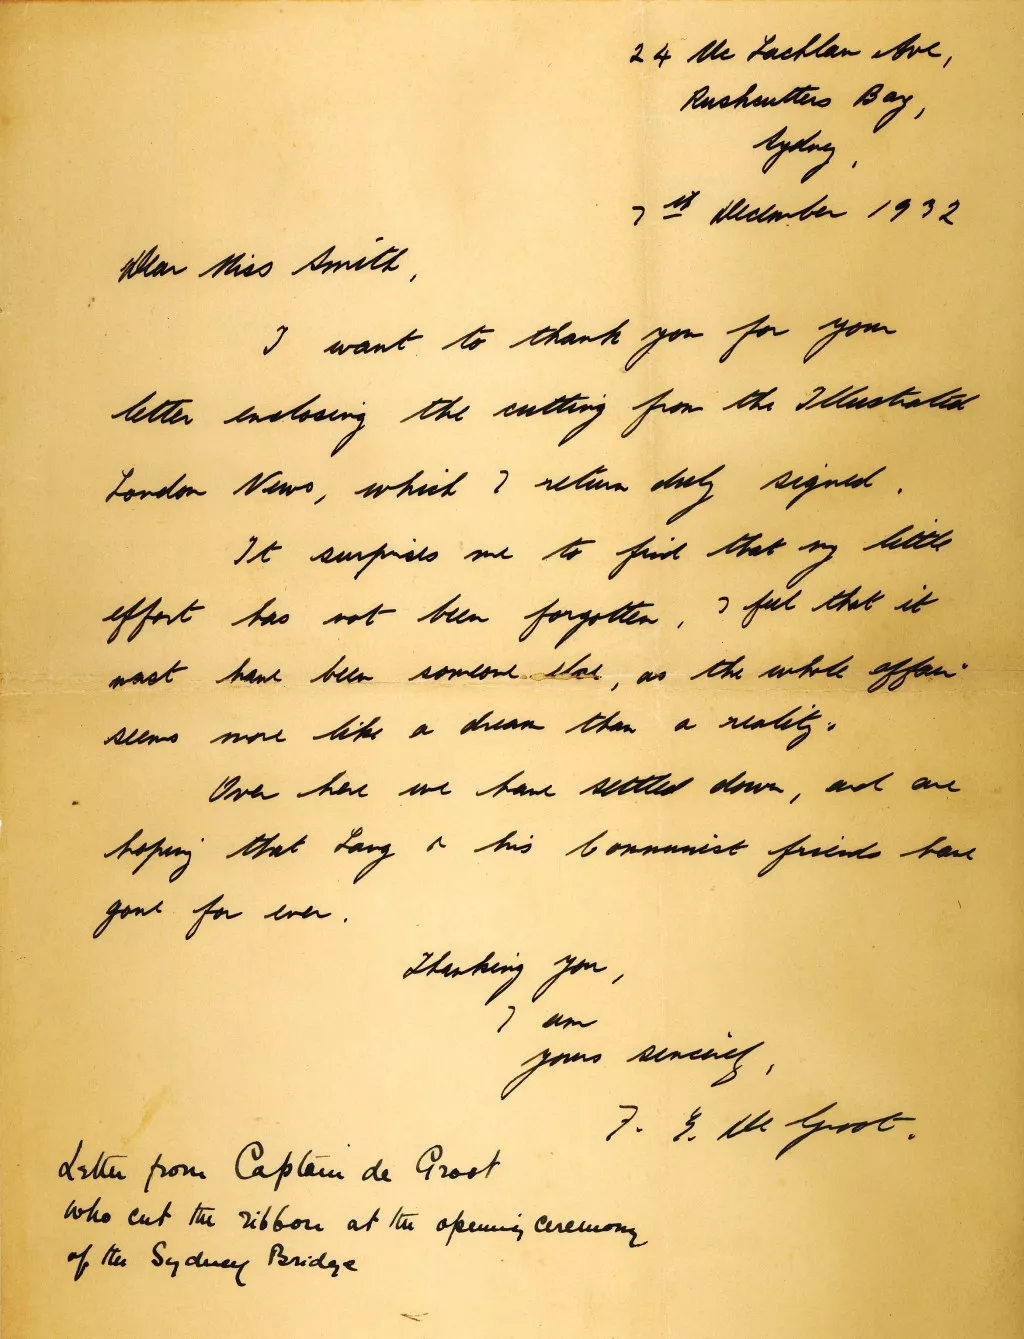 24 Mc Lachlan Ave,
Rushcutters Bay,
Sydney,
7th December 1932
Dear Miss Smith,
I want to thank you for your
letter enclosing the cutting from the Illustrated
London News, which I return duly signed.
It surprises me to find that my little
effort has not been forgotten, I feel that it
must have been someone else, as the whole affair
seems more like a dream than a reality.
Over here we have settled down, and are
hoping that Lang & his Communist friends have
gone for ever.
Thanking you,
I am
yours sincerely,
F. E. De Groot.
Letter from Captain de Groot
who cut the ribbon at the opening ceremony
of the Sydney Bridge